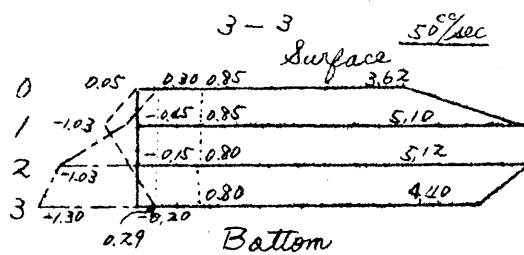 3-3
50 cc/sec
Surface
0 0.05 0.30 0.85 3.62
1 -1.03 -0.45 0.85 5.10
2 -1.03 -0.15 0.80 5.12
3 -1.30 -0.20 0.80 4.40
0.29 Bottom